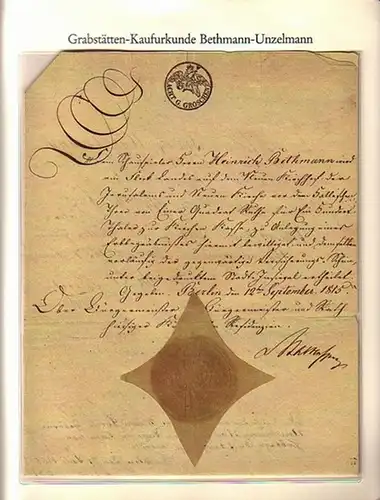 Grabstätten-Kaufurkunde Bethmann-Unzelmann
ACHT G. GROSCHEN
Dem Schauspieler Herrn Heinrich Bethmann wird
ein Stück Landes auf dem Neuen Kirchhof der
Jerusalems und Neuen Kirche vor dem Halleschen
Thore von Einer Quadrat Ruthe für Ein Hundert
Thaler zur Kirchen Kasse, zu Anlegung eines
Erbbegräbnisses hiermit bewilliget und demselben
vorläufig der gegenwärtige Versicherungs Schein
unter beigedrucktem Stadt Insiegel ertheilet.
Gegeben, Berlin den 12ten September 1815
Ober Bürgermeister, Bürgermeister und Rath
hiesiger Residenzien.